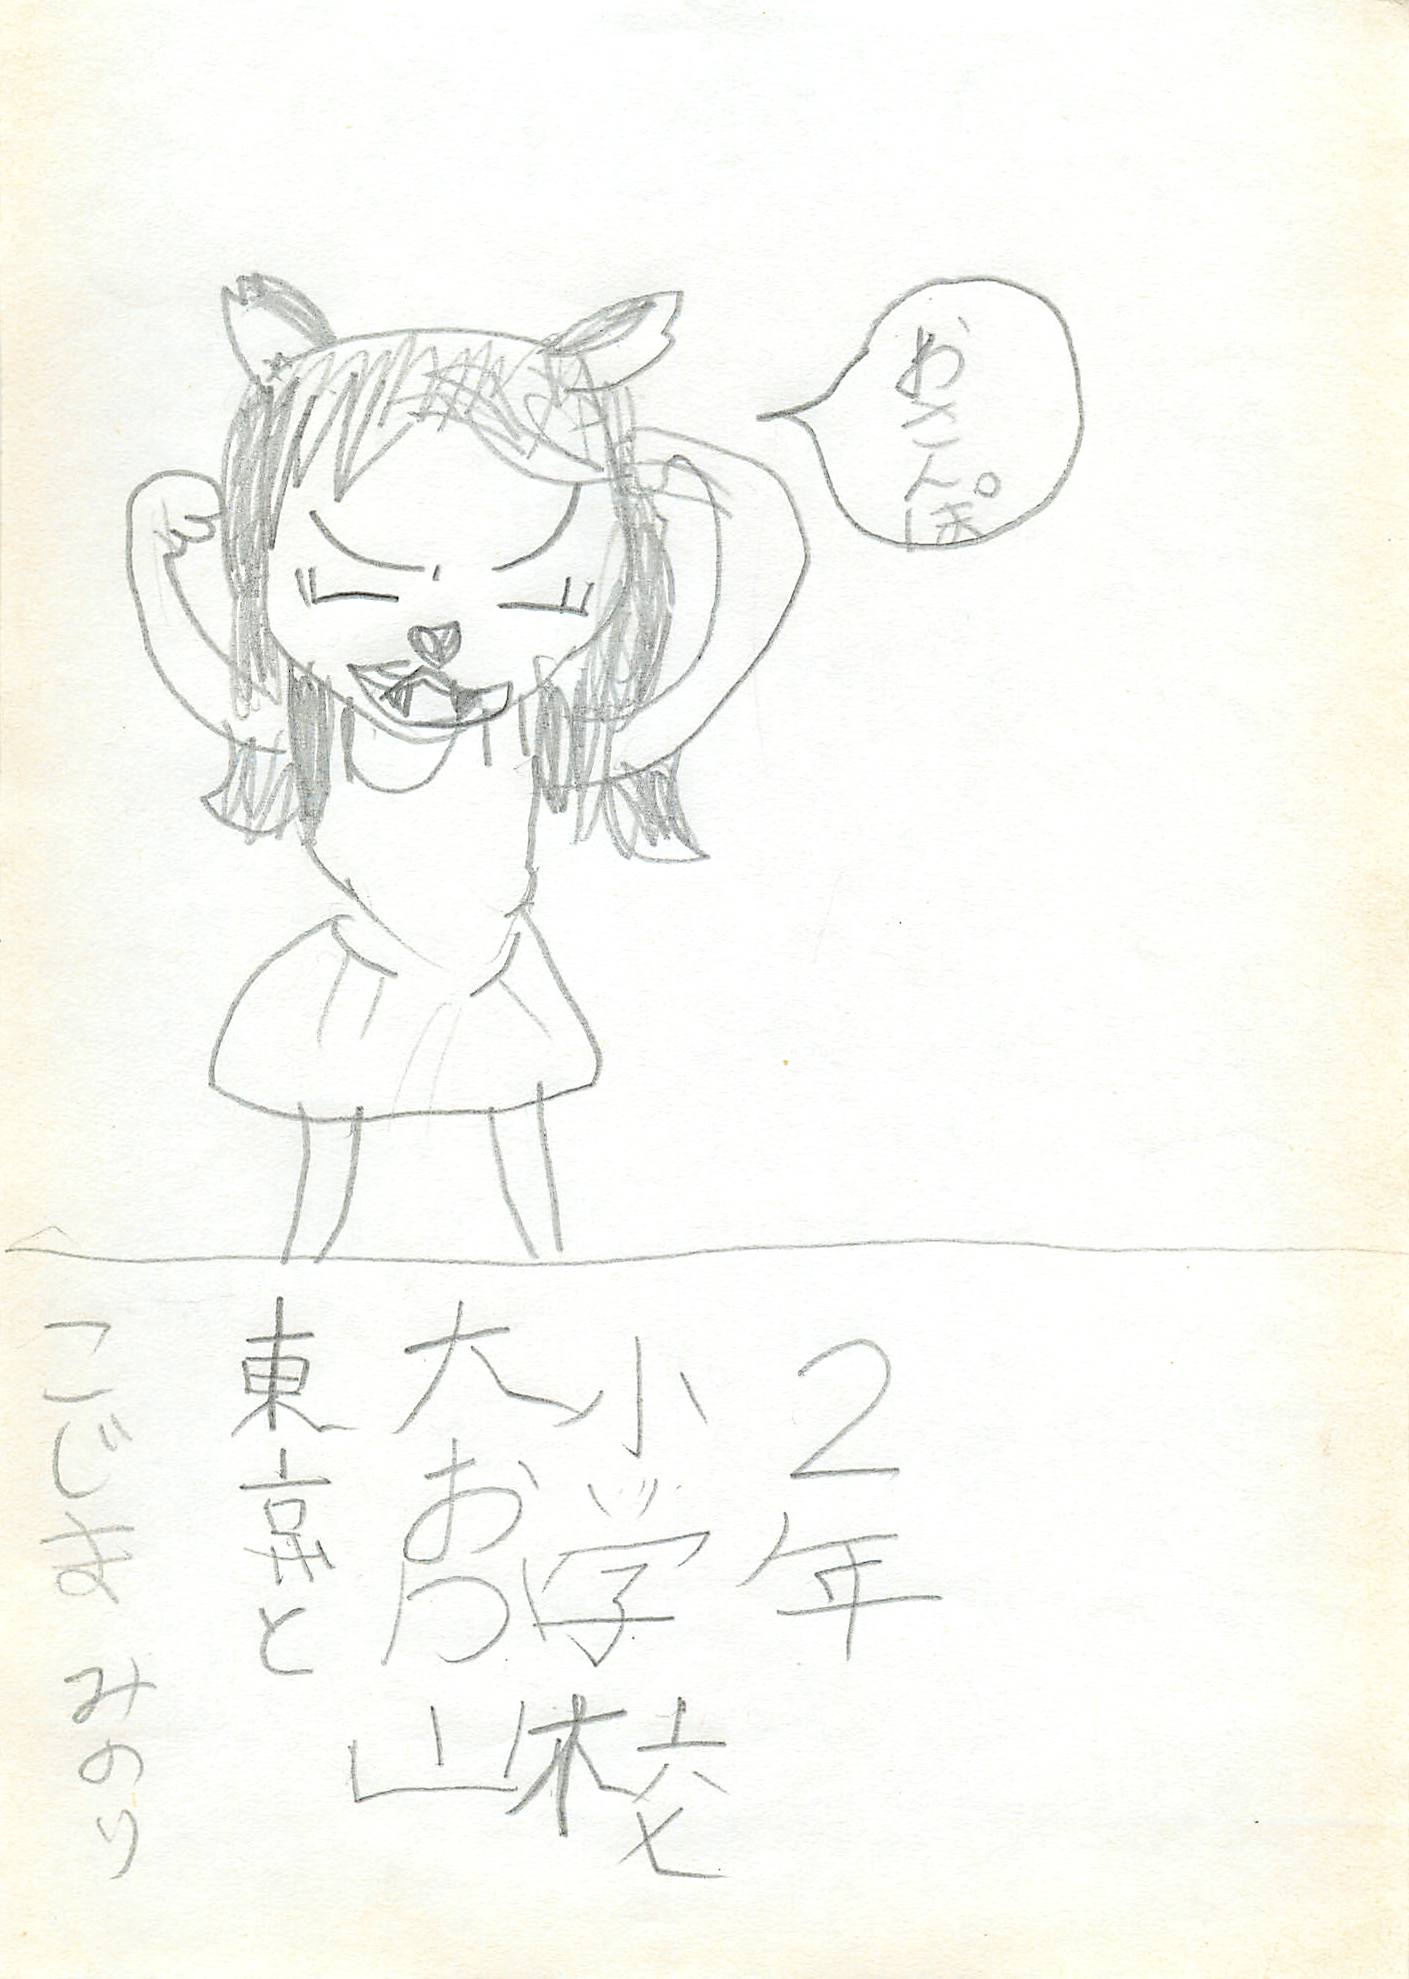 おさんぽ
こじま みのり
東京と
大おか山
小学校
2年